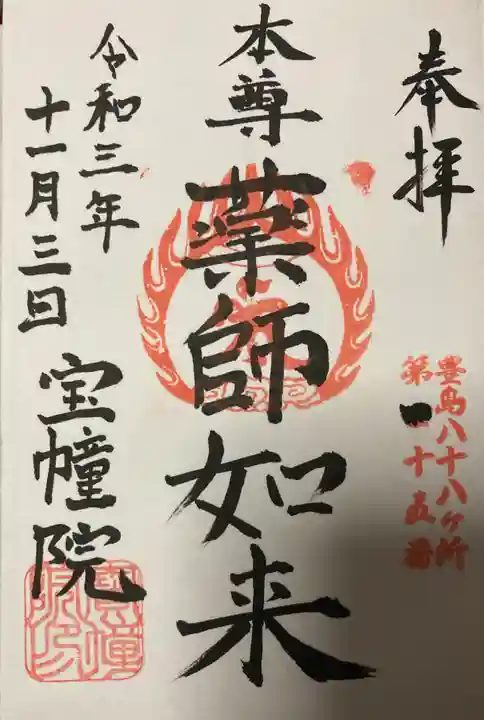 奉拝
豊島八十八ヶ所
第十五番
本尊
薬師如来
令和三年
十一月三日
宝幢院
寶幢
院印